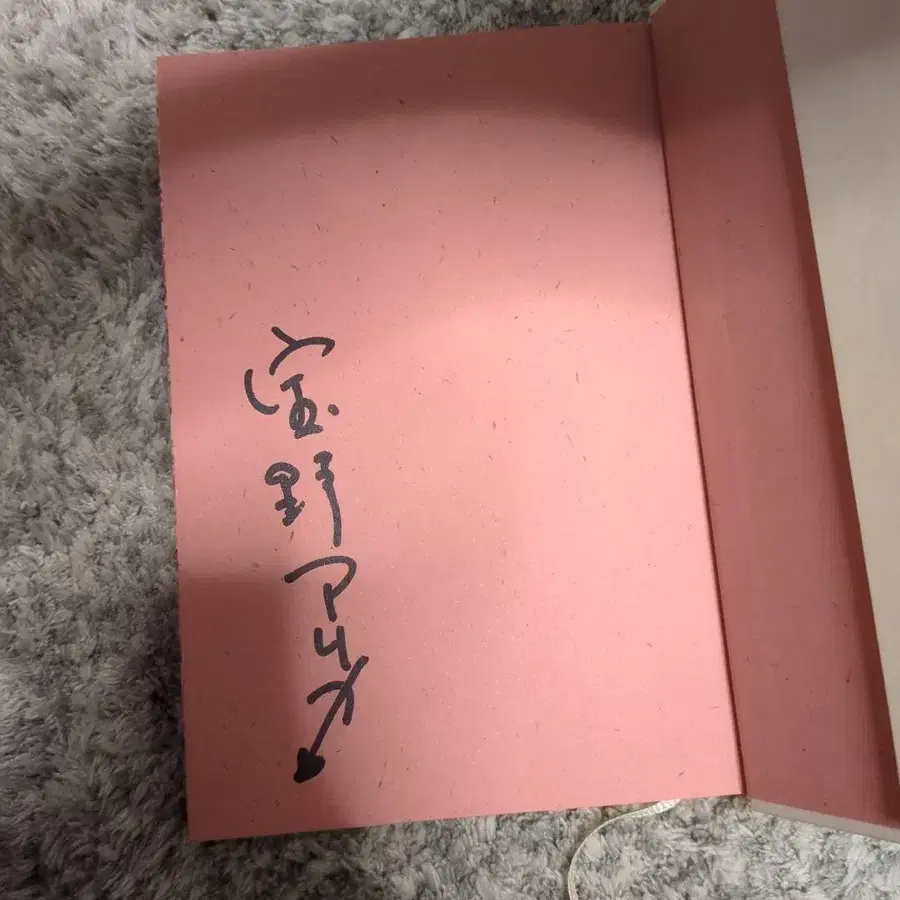 宝野アリカ